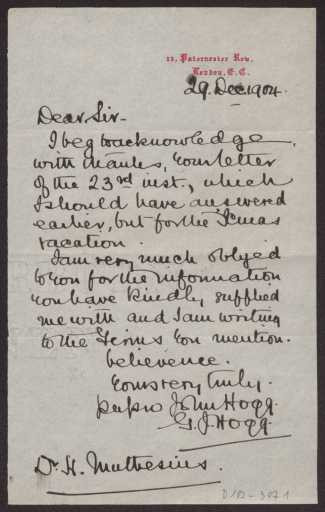 13, Paternoster Row,
London, E.C.
29. Dec 1904.
Dear Sir-
I beg to acknowledge
with thanks, your letter
of the 23rd inst., which
I should have answered
earlier, but for the Xmas
vacation.
I am very much obliged
to you for the information
you have kindly supplied
me with and I am writing
to the Firms you mention.
Believe me.
Yours very truly.
pro John Hogg.
G. J. Hogg.
Dr H. Muthesius.